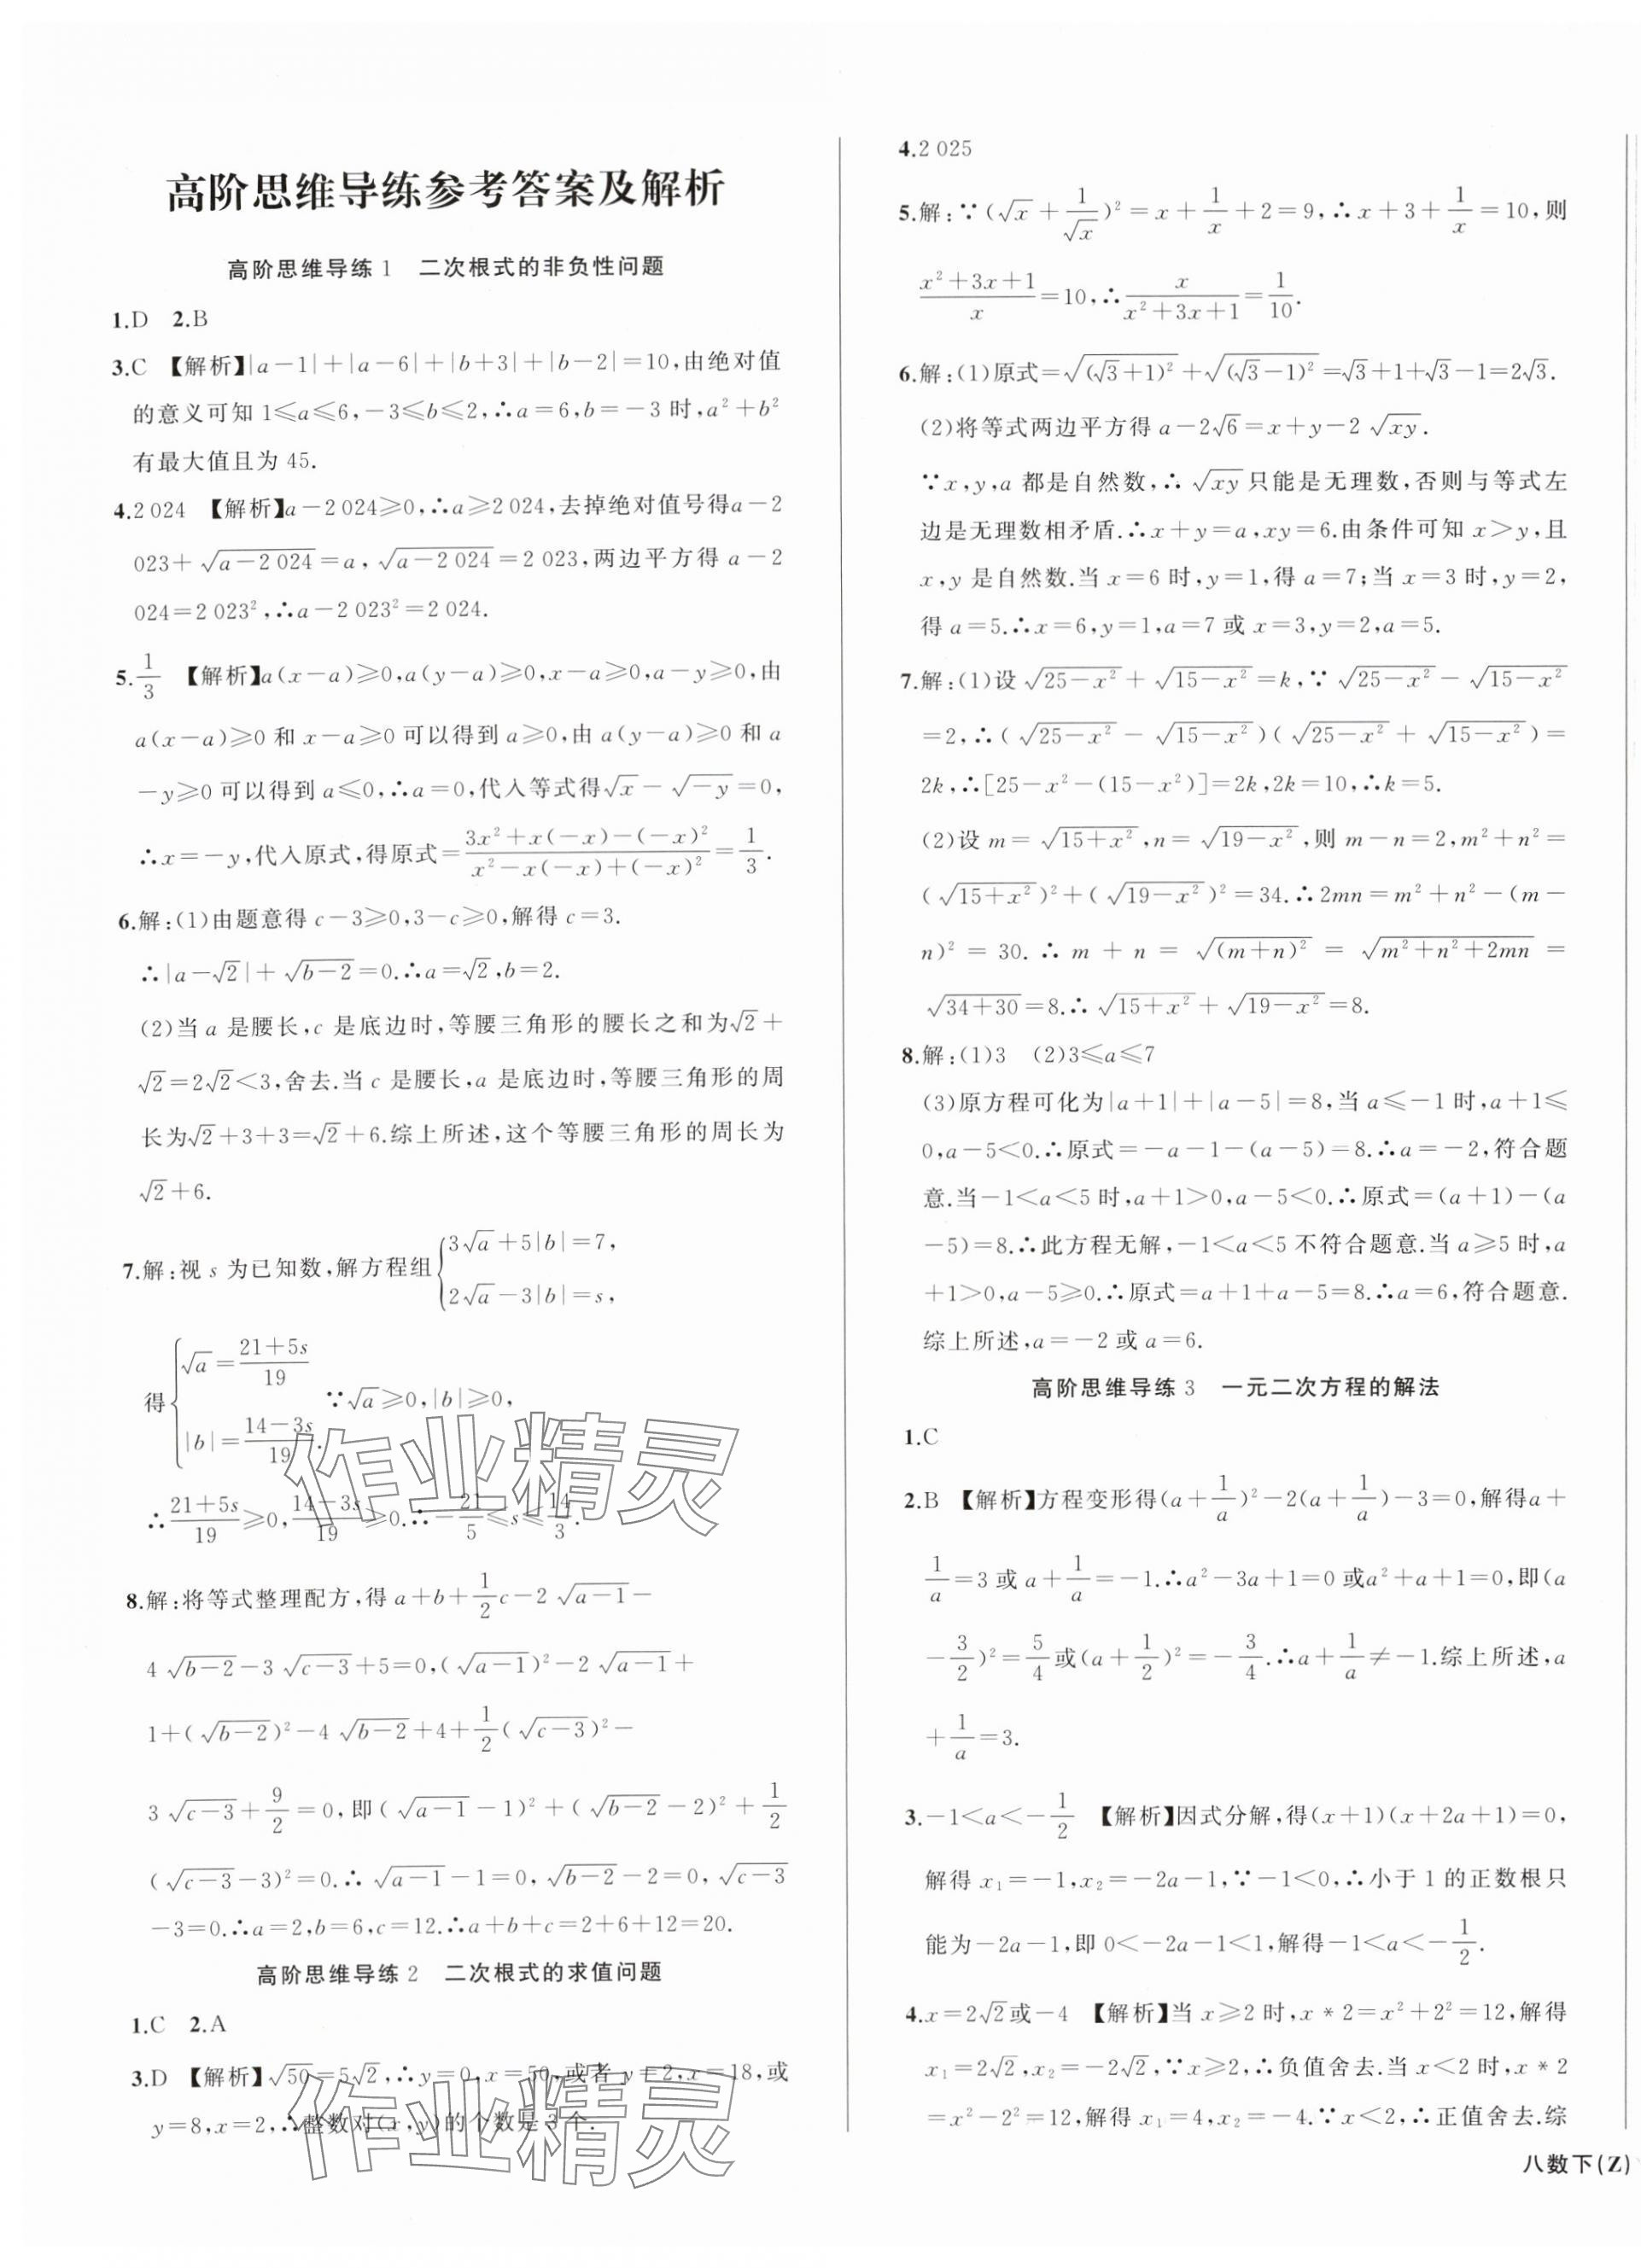 高阶思维导练参考答案及解析
高阶思维导练1　二次根式的非负性问题
1.D　2.B
3.C　【解析】|a－1|＋|a－6|＋|b＋3|＋|b－2|＝10,由绝对值
的意义可知1≤a≤6,－3≤b≤2,∴a＝6,b＝－3时,a²＋b²
有最大值且为45.
4.2 024　【解析】a－2 024≥0,∴a≥2 024,去掉绝对值号得a－2
023＋√(a－2 024)＝a,√(a－2 024)＝2 023,两边平方得a－2
024＝2 023²,∴a－2 023²＝2 024.
5.1/3　【解析】a(x－a)≥0,a(y－a)≥0,x－a≥0,a－y≥0,由
a(x－a)≥0和x－a≥0可以得到a≥0,由a(y－a)≥0和a
－y≥0可以得到a≤0,∴a＝0,代入等式得√x－√(－y)＝0,
∴x＝－y,代入原式,得原式＝(3x²＋x(－x)－(－x)²)/(x²－x(－x)＋(－x)²)＝1/3.
6.解:(1)由题意得c－3≥0,3－c≥0,解得c＝3.
∴|a－√2|＋√(b－2)＝0.∴a＝√2,b＝2.
(2)当a是腰长,c是底边时,等腰三角形的腰长之和为√2＋
√2＝2√2＜3,舍去.当c是腰长,a是底边时,等腰三角形的周
长为√2＋3＋3＝√2＋6.综上所述,这个等腰三角形的周长为
√2＋6.
7.解:视s为已知数,解方程组{3√a＋5|b|＝7,
2√a－3|b|＝s,
得{√a＝(21＋5s)/19
|b|＝(14－3s)/19.　∵√a≥0,|b|≥0,
∴(21＋5s)/19≥0,(14－3s)/19≥0.∴－21/5≤s≤14/3.
8.解:将等式整理配方,得a＋b＋1/2c－2√(a－1)－
4√(b－2)－3√(c－3)＋5＝0,(√(a－1))²－2√(a－1)＋
1＋(√(b－2))²－4√(b－2)＋4＋1/2(√(c－3))²－
3√(c－3)＋9/2＝0,即(√(a－1)－1)²＋(√(b－2)－2)²＋1/2
(√(c－3)－3)²＝0.∴√(a－1)－1＝0,√(b－2)－2＝0,√(c－3)
－3＝0.∴a＝2,b＝6,c＝12.∴a＋b＋c＝2＋6＋12＝20.
高阶思维导练2　二次根式的求值问题
1.C　2.A
3.D　【解析】√50＝5√2,∴y＝0,x＝50,或者y＝2,x＝18,或
y＝8,x＝2,∴整数对(x,y)的个数是3个.
4.2 025
5.解:∵(√x＋1/√x)²＝x＋1/x＋2＝9,∴x＋3＋1/x＝10,则
(x²＋3x＋1)/x＝10,∴x/(x²＋3x＋1)＝1/10.
6.解:(1)原式＝√((√3＋1)²)＋√((√3－1)²)＝√3＋1＋√3－1＝2√3.
(2)将等式两边平方得a－2√6＝x＋y－2√(xy).
∵x,y,a都是自然数,∴√(xy)只能是无理数,否则与等式左
边是无理数相矛盾.∴x＋y＝a,xy＝6.由条件可知x＞y,且
x,y是自然数.当x＝6时,y＝1,得a＝7;当x＝3时,y＝2,
得a＝5.∴x＝6,y＝1,a＝7或x＝3,y＝2,a＝5.
7.解:(1)设√(25－x²)＋√(15－x²)＝k,∵√(25－x²)－√(15－x²)
＝2,∴(√(25－x²)－√(15－x²))(√(25－x²)＋√(15－x²))＝
2k,∴[25－x²－(15－x²)]＝2k,2k＝10,∴k＝5.
(2)设m＝√(15＋x²),n＝√(19－x²),则m－n＝2,m²＋n²＝
(√(15＋x²))²＋(√(19－x²))²＝34.∴2mn＝m²＋n²－(m－
n)²＝30.∴m＋n＝√((m＋n)²)＝√(m²＋n²＋2mn)＝
√(34＋30)＝8.∴√(15＋x²)＋√(19－x²)＝8.
8.解:(1)3　(2)3≤a≤7
(3)原方程可化为|a＋1|＋|a－5|＝8,当a≤－1时,a＋1≤
0,a－5＜0.∴原式＝－a－1－(a－5)＝8.∴a＝－2,符合题
意.当－1＜a＜5时,a＋1＞0,a－5＜0.∴原式＝(a＋1)－(a
－5)＝8.∴此方程无解,－1＜a＜5不符合题意.当a≥5时,a
＋1＞0,a－5≥0.∴原式＝a＋1＋a－5＝8.∴a＝6,符合题意.
综上所述,a＝－2或a＝6.
高阶思维导练3　一元二次方程的解法
1.C
2.B　【解析】方程变形得(a＋1/a)²－2(a＋1/a)－3＝0,解得a＋
1/a＝3或a＋1/a＝－1.∴a²－3a＋1＝0或a²＋a＋1＝0,即(a
－3/2)²＝5/4或(a＋1/2)²＝－3/4.∴a＋1/a≠－1.综上所述,a
＋1/a＝3.
3.－1＜a＜－1/2　【解析】因式分解,得(x＋1)(x＋2a＋1)＝0,
解得x₁＝－1,x₂＝－2a－1,∵－1＜0,∴小于1的正数根只
能为－2a－1,即0＜－2a－1＜1,解得－1＜a＜－1/2.
4.x＝2√2或－4　【解析】当x≥2时,x＊2＝x²＋2²＝12,解得
x₁＝2√2,x₂＝－2√2,∵x≥2,∴负值舍去.当x＜2时,x＊2
＝x²－2²＝12,解得x₁＝4,x₂＝－4.∵x＜2,∴正值舍去.综
八数下(Z)
作业精灵
作业精灵